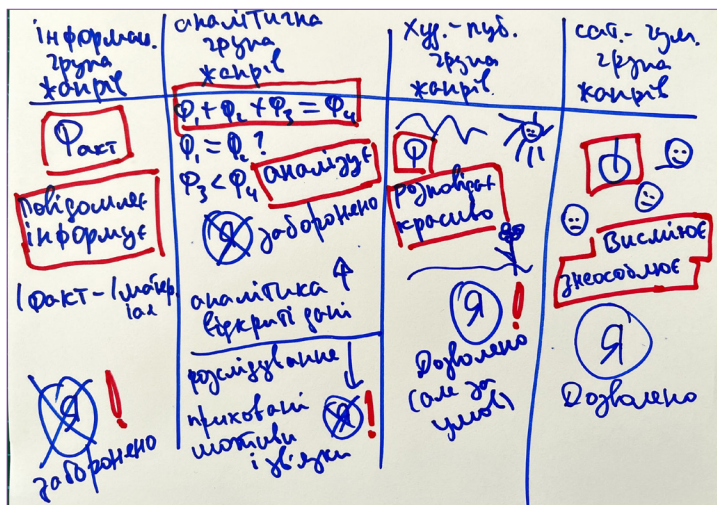 інформац.
група
жанрів
Факт
повідомляє
інформує
1 факт - 1 матер.
іал
Я !
заборонено
аналітична
група
жанрів
Ф₁ + Ф₂ + Ф₃ = Ф₄
Ф₁ = Ф₂ ?
Ф₃ < Ф₄
аналізує
Я заборонено
аналітика ↑
відкриті дані
розслідування ↓
приховані
мотиви
і зв'язки
Я !
худ.-пуб.
група
жанрів
Ф
розповідає
красиво
Я !
Дозволено
(але за
умов)
сат.-гум.
група
жанрів
Ф
Висміює
знеособлює
Я
Дозволено